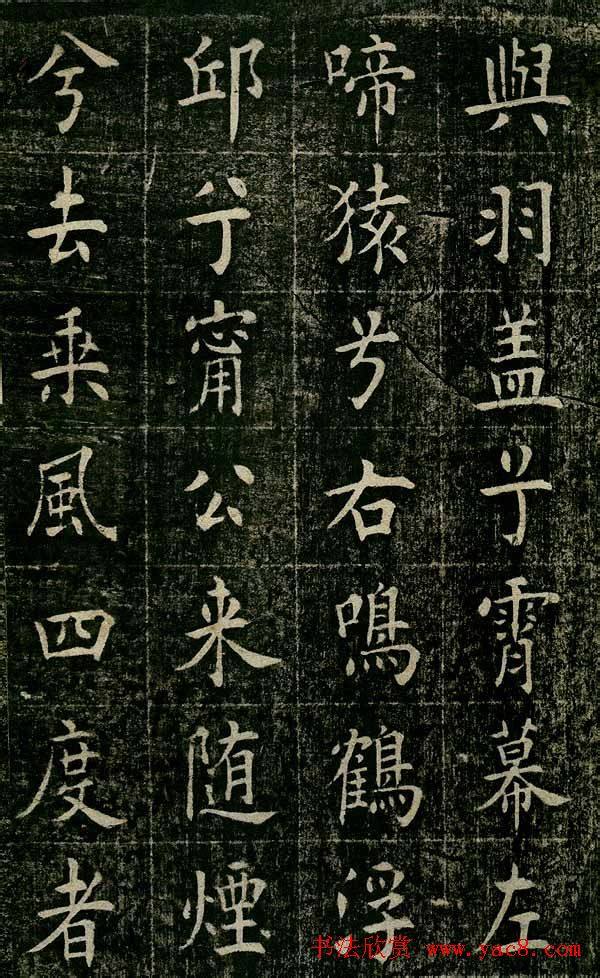 與羽盖兮霄幕左
啼猿兮右鳴鶴浮
邱兮甯公来随煙
兮去乗風四度者
书法欣赏 www.yac8.com